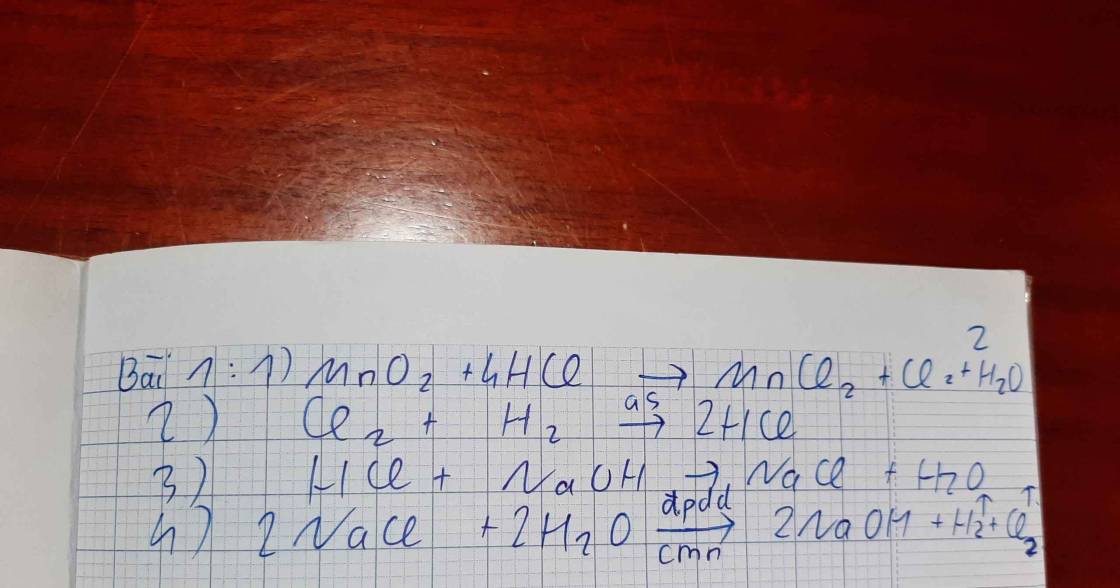 2
Bài 1: 1) MnO₂ + 4HCl → MnCl₂ + Cl₂ + H₂O
2) Cl₂ + H₂ as→ 2HCl
3) HCl + NaOH → NaCl + H₂O
4) 2NaCl + 2H₂O đpdd→cmn 2NaOH + H₂↑ + Cl₂↑